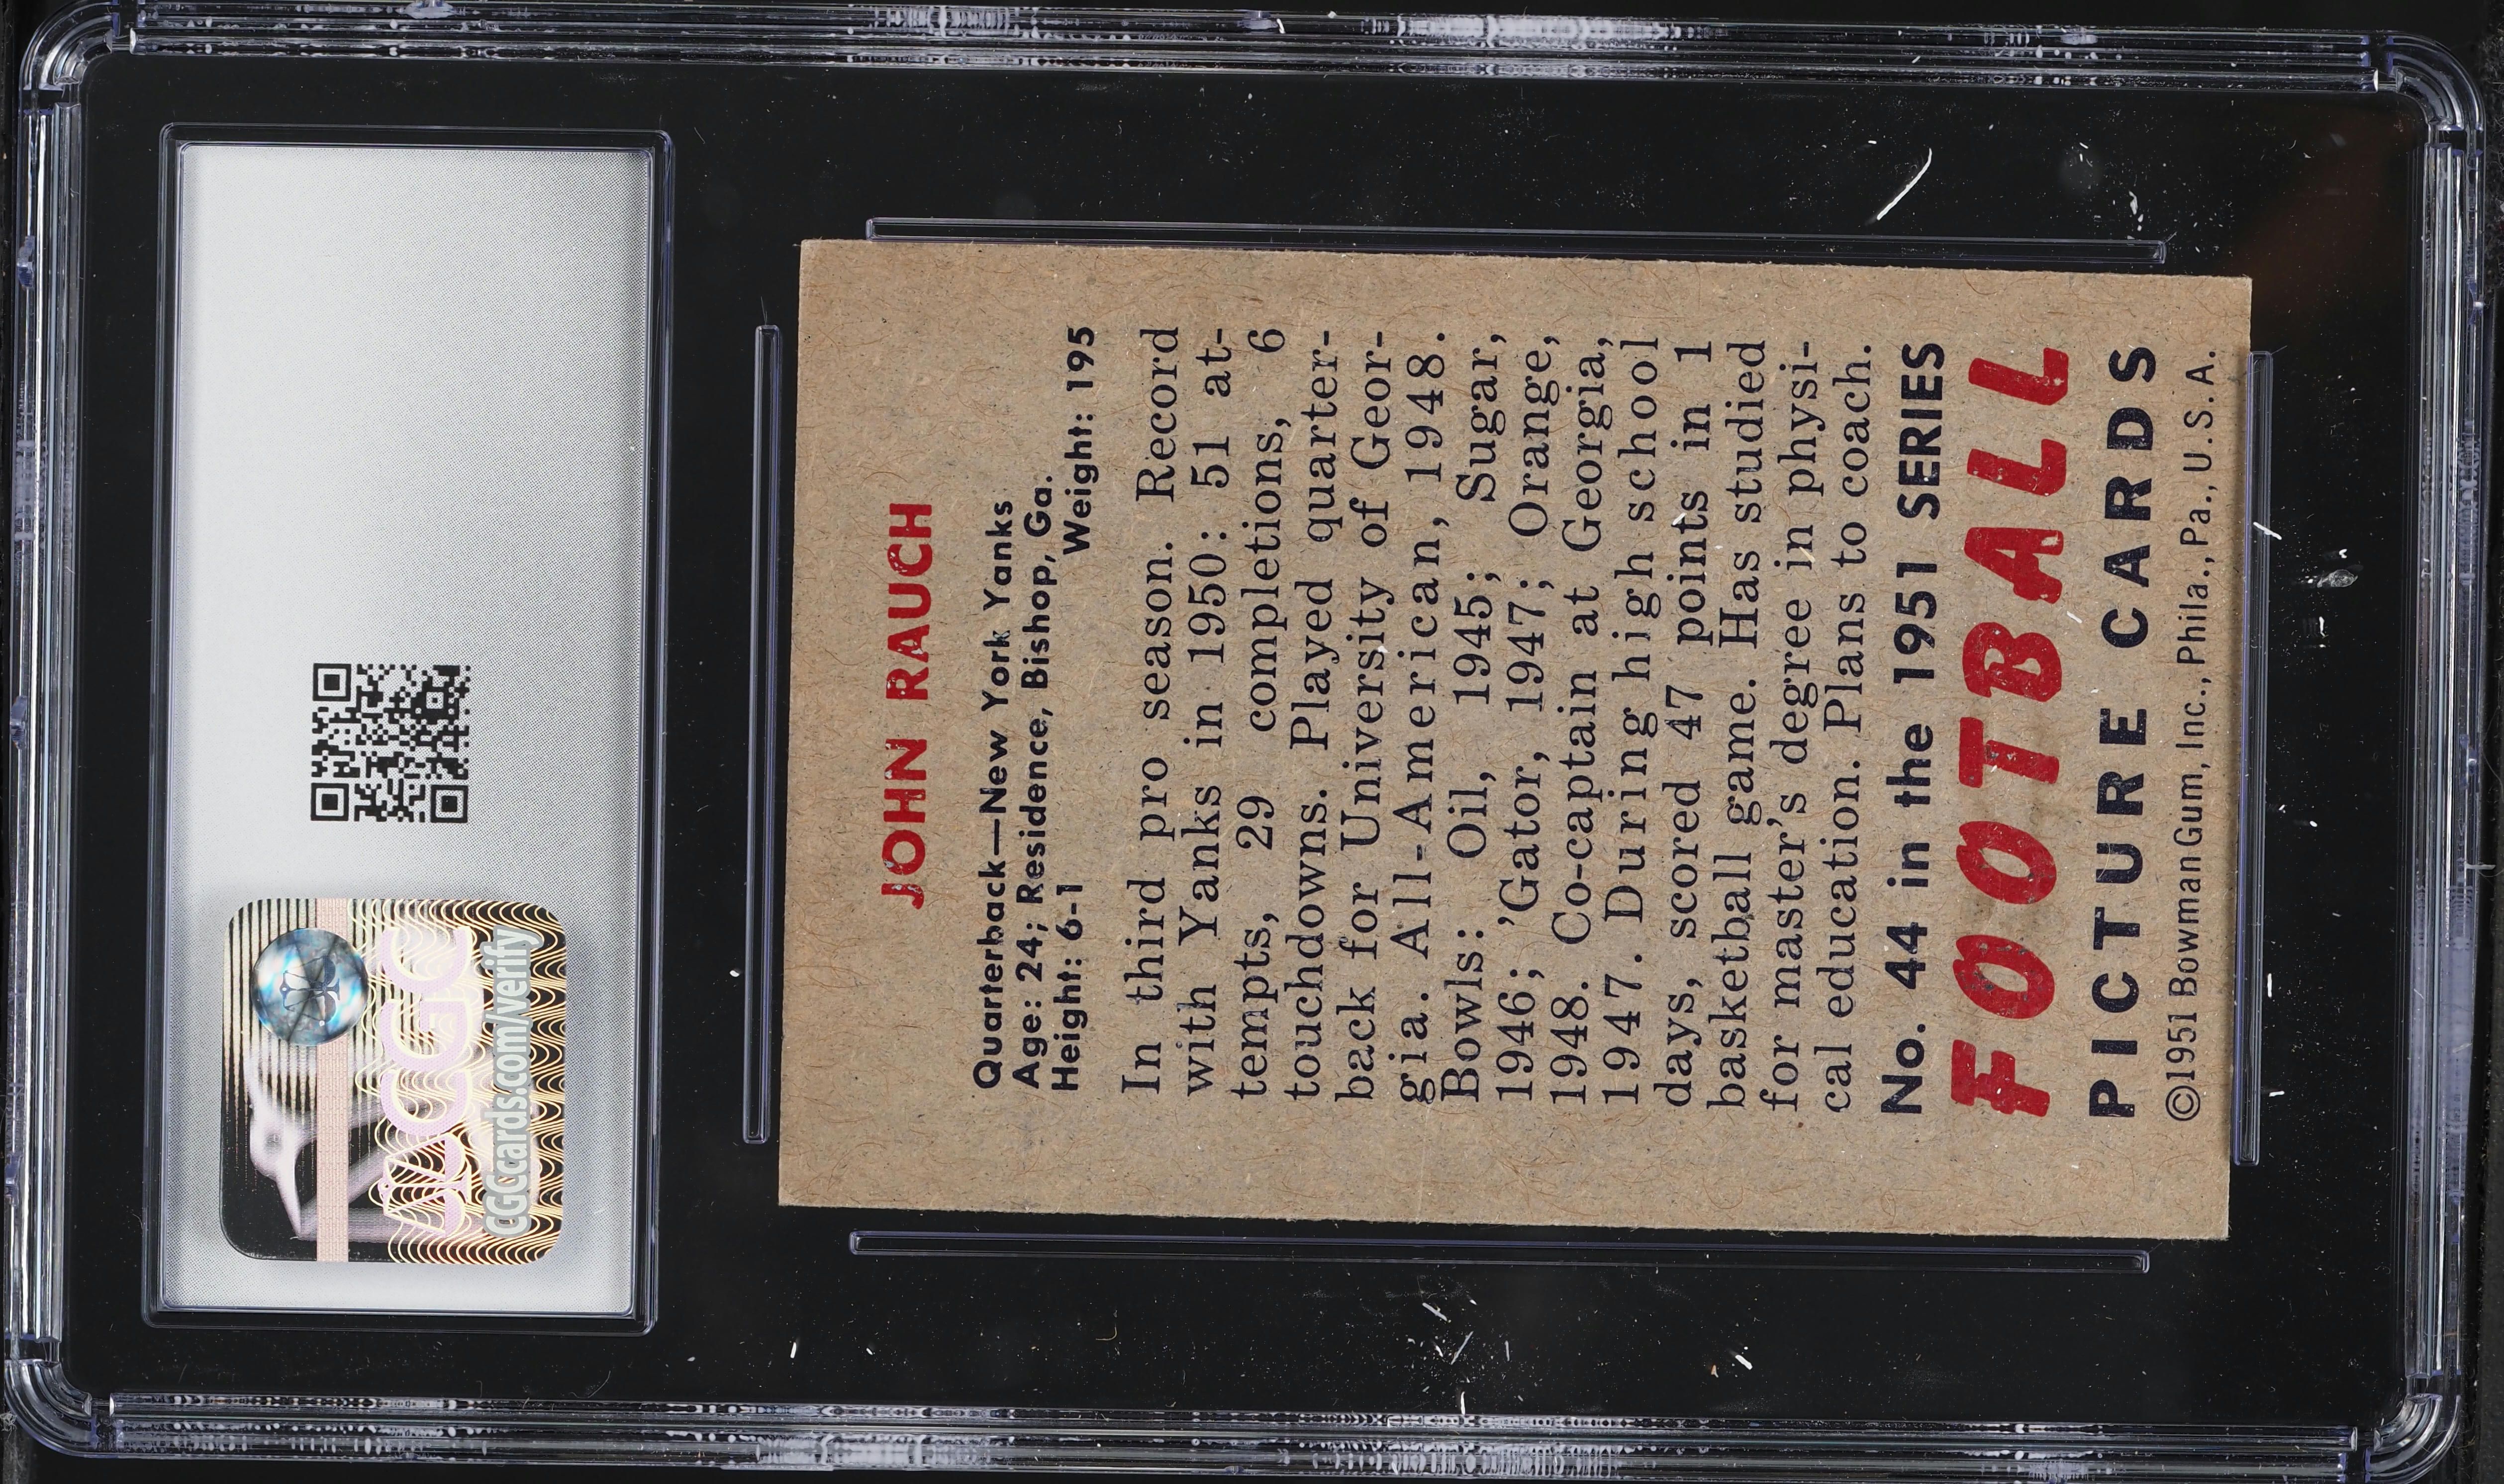 JOHN RAUCH
Quarterback—New York Yanks
Age: 24; Residence, Bishop, Ga.
Height: 6-1 Weight: 195
In third pro season. Record
with Yanks in 1950: 51 at-
tempts, 29 completions, 6
touchdowns. Played quarter-
back for University of Geor-
gia. All-American, 1948.
Bowls: Oil, 1945; Sugar,
1946; 'Gator, 1947; Orange,
1948. Co-captain at Georgia,
1947. During high school
days, scored 47 points in 1
basketball game. Has studied
for master's degree in physi-
cal education. Plans to coach.
No. 44 in the 1951 SERIES
FOOTBALL
PICTURE CARDS
©1951 Bowman Gum, Inc., Phila., Pa., U. S. A.
CGC
CGCcards.com/verify